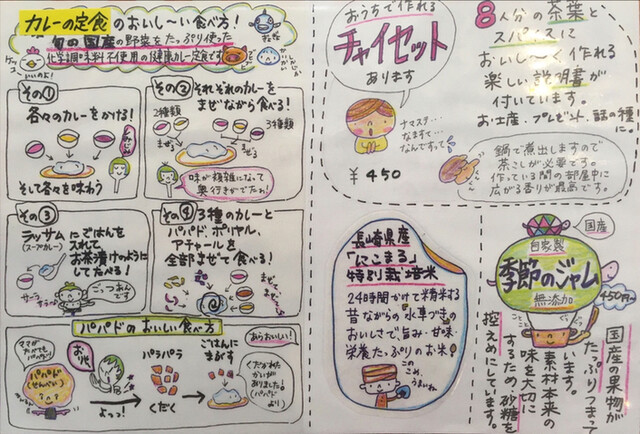 カレーの定食のおいし〜い食べ方！
旬の国産の野菜をたっぷり使った
化学調味料不使用の健康カレー定食です
その①
各々のカレーをかける！
そして各々を味わう
その②
それぞれのカレーを
まぜながら食べる！
2種類
3種類
まぜ
まぜる
味が複雑になって
奥行きがでたわ！
その③
ラッサムにごはんを
(スープカレー)
入れて
お茶漬けのように
してたべる！
サーラ
サーラ
ごっつぁんです
その④
3種のカレーと
パパド、ポリヤル、
アチャールを
全部まぜて食べる！
パパドのおいしい食べ方
パパド
(せんべい)
お〜り
よっつ！
パラパラ
くだく
ごはんに
まぶす
あらおいしい！
おうちで作れる
チャイセット
あります
ナマステ…
なますて…
なんですって
¥450
8人分の茶葉と
スパイスに
おいし〜く作れる
楽しい説明書が
付いています。
お土産、プレゼント、話の種に。
鍋で煮出しますので
茶こしが必要です。
作っている間の部屋中に
広がる香りが最高です。
長崎県産
「にこまる」
特別栽培米
24時間かけて精米する
昔ながらの水車つきの
おいしさで、旨み・甘味・
栄養たっぷりのお米！
これ、
うまいわ
国産
自家製
季節のジャム
無添加
450円〜
国産の果物が
たっぷりつまって
います。
素材本来の
味を大切に
するため、砂糖を
控えめにしています。